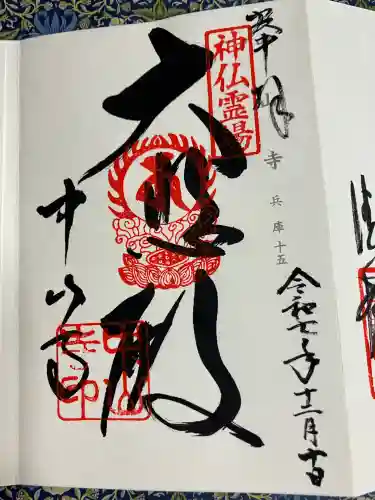 奉拝
神仏霊場
寺
兵庫十五
令和七年十二月十日
大悲殿
中山寺
中山寺印